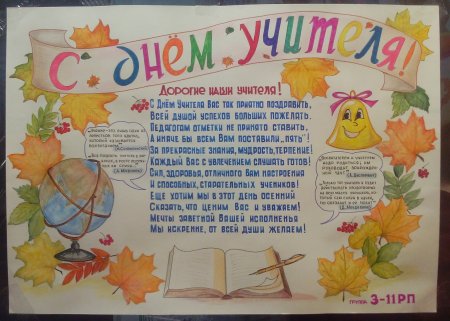 С ДНЁМ УЧИТЕЛЯ!
ДОРОГИЕ НАШИ УЧИТЕЛЯ!
С ДНЁМ УЧИТЕЛЯ ВАС ТАК ПРИЯТНО ПОЗДРАВИТЬ,
ВСЕЙ ДУШОЙ УСПЕХОВ БОЛЬШИХ ПОЖЕЛАТЬ.
ПЕДАГОГАМ ОТМЕТКИ НЕ ПРИНЯТО СТАВИТЬ,
А ИНАЧЕ БЫ ВСЕМ ВАМ ПОСТАВИЛИ „ПЯТЬ"!
ЗА ПРЕКРАСНЫЕ ЗНАНИЯ, МУДРОСТЬ, ТЕРПЕНИЕ!
КАЖДЫЙ ВАС С УВЛЕЧЕНИЕМ СЛУШАТЬ ГОТОВ!
СИЛ, ЗДОРОВЬЯ, ОТЛИЧНОГО ВАМ НАСТРОЕНИЯ
И СПОСОБНЫХ, СТАРАТЕЛЬНЫХ УЧЕНИКОВ!
ЕЩЕ ХОТИМ МЫ В ЭТОТ ДЕНЬ ОСЕННИЙ
СКАЗАТЬ, ЧТО ЦЕНИМ ВАС И УВАЖАЕМ!
МЕЧТЫ ЗАВЕТНОЙ ВАШЕЙ ИСПОЛНЕНЬЯ
МЫ ИСКРЕННЕ, ОТ ВСЕЙ ДУШИ ЖЕЛАЕМ!
ГРУППА 3-11РП